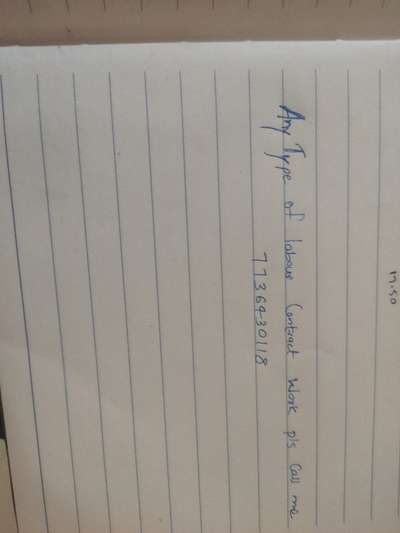 17.50
Any Type of labour Contract Work pls Call me
7736430118